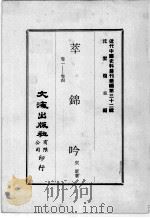 近代中國史料叢刊續編第三十二輯
沈雲龍主編
萃錦吟
卷一——卷四
奕訢著
文海出版社有限公司印行